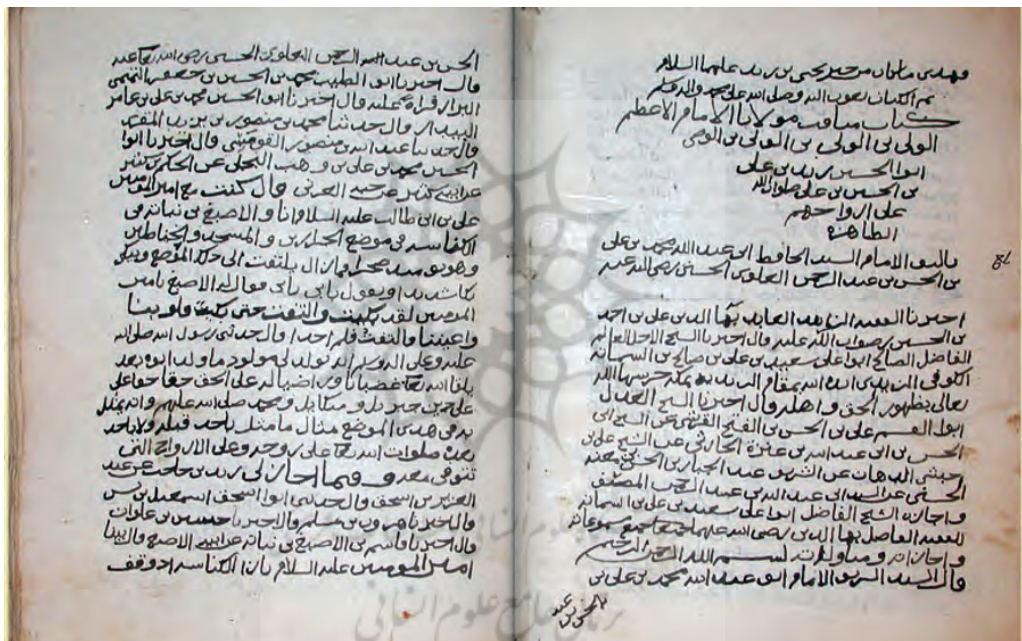 وهدىى ما كان من خبر يحيى بن زيد عليهما السلام
تم الكتاب بعون الله وصلى الله على محمد واله وسلم
كتاب مناقب مولانا الامام الاعظم
الولي بن الولي بن الولي بن الوصي
ابوا الحسين زيد بن علي
بن الحسين بن علي صلوات الله
على ارواحهم
الطاهرة
تاليف الامام السيد الحافظ ابي عبد الله محمد بن علي
بن الحسن بن عبد الرحمن العلوي الحسني رضي الله عنه
اخبرنا الفقيه الزاهد العابد بها الدين علي بن احمد
بن الحسين رضوان الله عليه قال اخبرنا الشيخ الاجل العالم
الفاضل الصالح ابوا علي سعيد بن علي بن صالح بن السمانة
الكوفي الزيدي ايده الله بمقام الزيدية بمكة حرسها الله
تعالى بظهور الحق واهله وقال اخبرنا الشيخ العدل
ابوا القسم علي بن الحسن بن الفتي القرشي عن الشيخ ابي
الحسن بن ابي عبد الله بن عنزة الحارثي عن الشيخ علي بن
حبشي الدهان عن الشريف عبد الجبار بن الحسن بن معية
الحسني عن السيد ابي عبد الله بن عبد الرحمن المصنف
واجازه الشيخ الفاضل ابوا علي سعيد بن علي بن السمانة
للفقيه الفاضل بها الدين رضي الله عنهما جميعا جميع مسموعاته
واجازاته ومناولاته بسم الله الرحمن الرحيم
قال السيد الشريف الامام ابو عبد الله محمد بن علي بن
الحسن بن عبد
الحسن بن عبد الرحمن العلوي الحسني رضي الله تعا عنه
قال اخبرنا ابو الطيب محمد بن الحسين بن جعفر التيمي
البزاز قراة عليه قال اخبرنا ابو الحسين محمد بن علي بن عامر
البندار قال حدثنا محمد بن منصور بن يزيد المقري
قال حدثنا عبد الله بن منصور القومسي قال اخبرنا ابوا
الحسين محمد بن علي بن وهب البجلي عن الحكم بن كثير
عن ابيه كثير عن حبة العرني قال كنت مع امير المومنين
علي بن ابي طالب عليه السلام انا والاصبغ بن نباتة في
الكناسة في موضع الجزارين والمسجد والخياطين
وهو يومئذ صحرا فما زال يلتفت الى ذلك الموضع ويبكي
بكا شديدا ويقول بابي بابي فقال له الاصبغ يا امير
المومنين لقد بكيت والتفت حتى بكت قلوبنا
واعيننا والتفت فلم ار احدا قال حدثني رسول الله صلى الله
عليه وعلى اله وسلم انه يولد لي مولود ما ولد ابوه بعد
يلقا الله تعا غضبانا وراضيا له على الحق حقا حقا على
دين جبريل وميكايل ومحمد صلى الله عليهم وانه يمثل
به في هذا الموضع مثال ما مثل باحد قبله ولا باحد
بعده صلوات الله تعا على روحه وعلى الارواح التي
تتوفى معه وفيما اجاز لي زيد بن حاجب عن عبد
العزيز بن اسحق قال حدثني ابوا اسحق اسمعيل بن يس
قال اخبرنا هرون بن مسلم قال اخبرنا حسين بن علوان
قال اخبرنا قاسم بن الاصبغ بن نباتة عن ابيه الاصبغ قال بينا
امير المومنين عليه السلام بان الكناسة اذ وقف